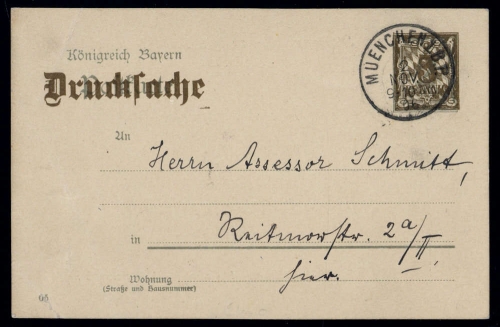 Königreich Bayern
Drucksache
MUENCHEN
NOV
An
Herrn Assessor Schmitt,
in
Reitmorstr. 2a/II,
hier.
Wohnung
(Straße und Hausnummer)
05